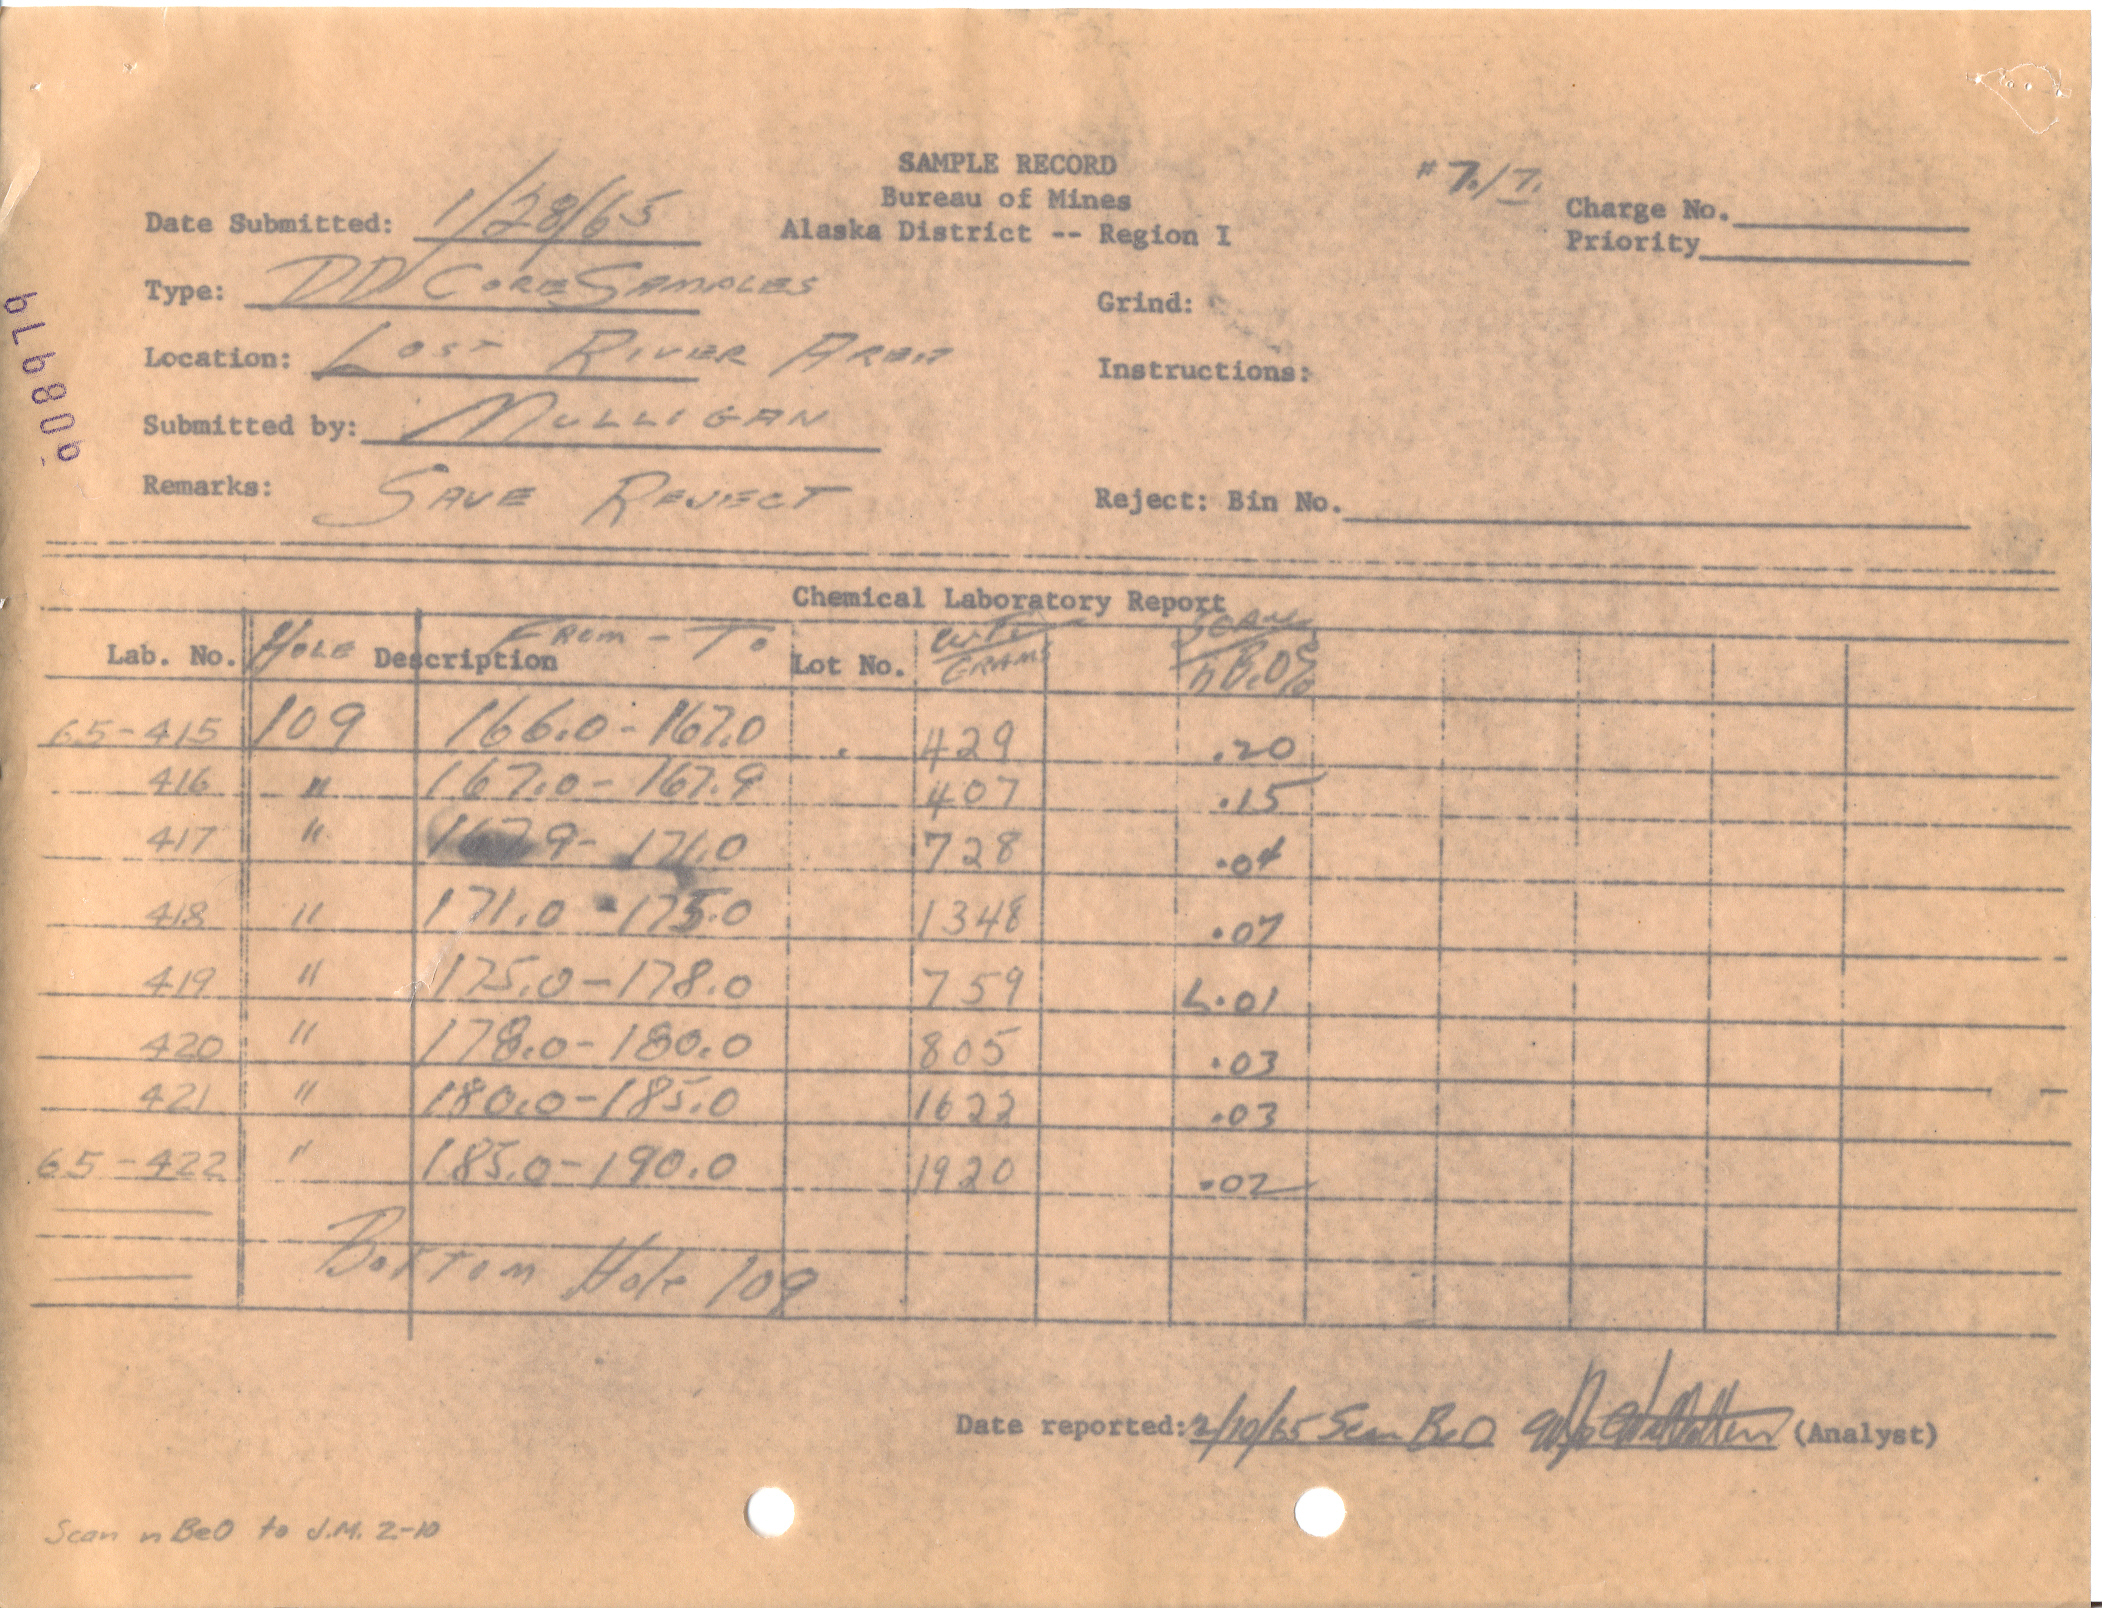 SAMPLE RECORD
Bureau of Mines
Alaska District -- Region I
# 7./7.
Charge No.
Priority
Date Submitted: 1/28/65
Type: DD Core Samples
Grind:
Location: Lost River Area
Instructions:
Submitted by: Mulligan
Remarks: Save Reject
Reject: Bin No.
Chemical Laboratory Report
Lab. No. Hole Description From - To Lot No. Wt. Grams Scan n BeO %
65-415 109 166.0 - 167.0 429 .20
416 " 167.0 - 167.9 407 .15
417 " 167.9 - 171.0 728 .04
418 " 171.0 - 175.0 1348 .07
419 " 175.0 - 178.0 759 L.01
420 " 178.0 - 180.0 805 .03
421 " 180.0 - 185.0 1622 .03
65-422 " 185.0 - 190.0 1920 .02
Bottom Hole 109
Date reported: 2/10/65 Scan BeO (Analyst)
Scan n BeO to J.M. 2-10